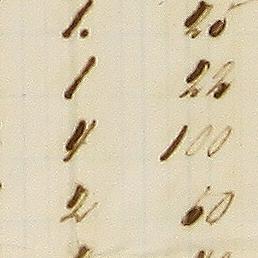 1. 25
1 22
4 100
2 60